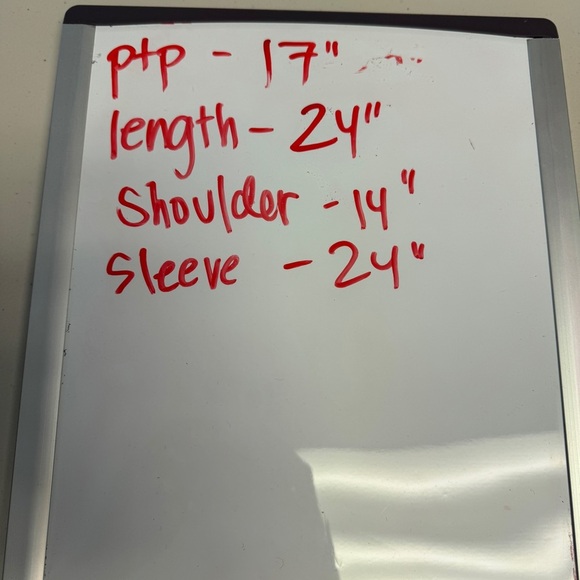 ptp - 17"
length - 24"
Shoulder - 14"
Sleeve - 24"